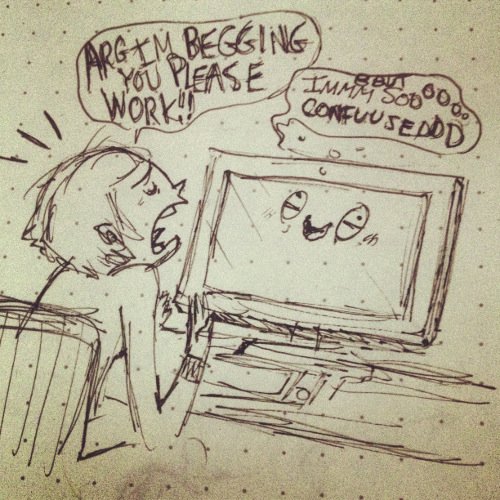 ARG IM BEGGING
YOU PLEASE
WORK!!
BBUT
IMMM SOOOOOOO
CONFUUSEDDD